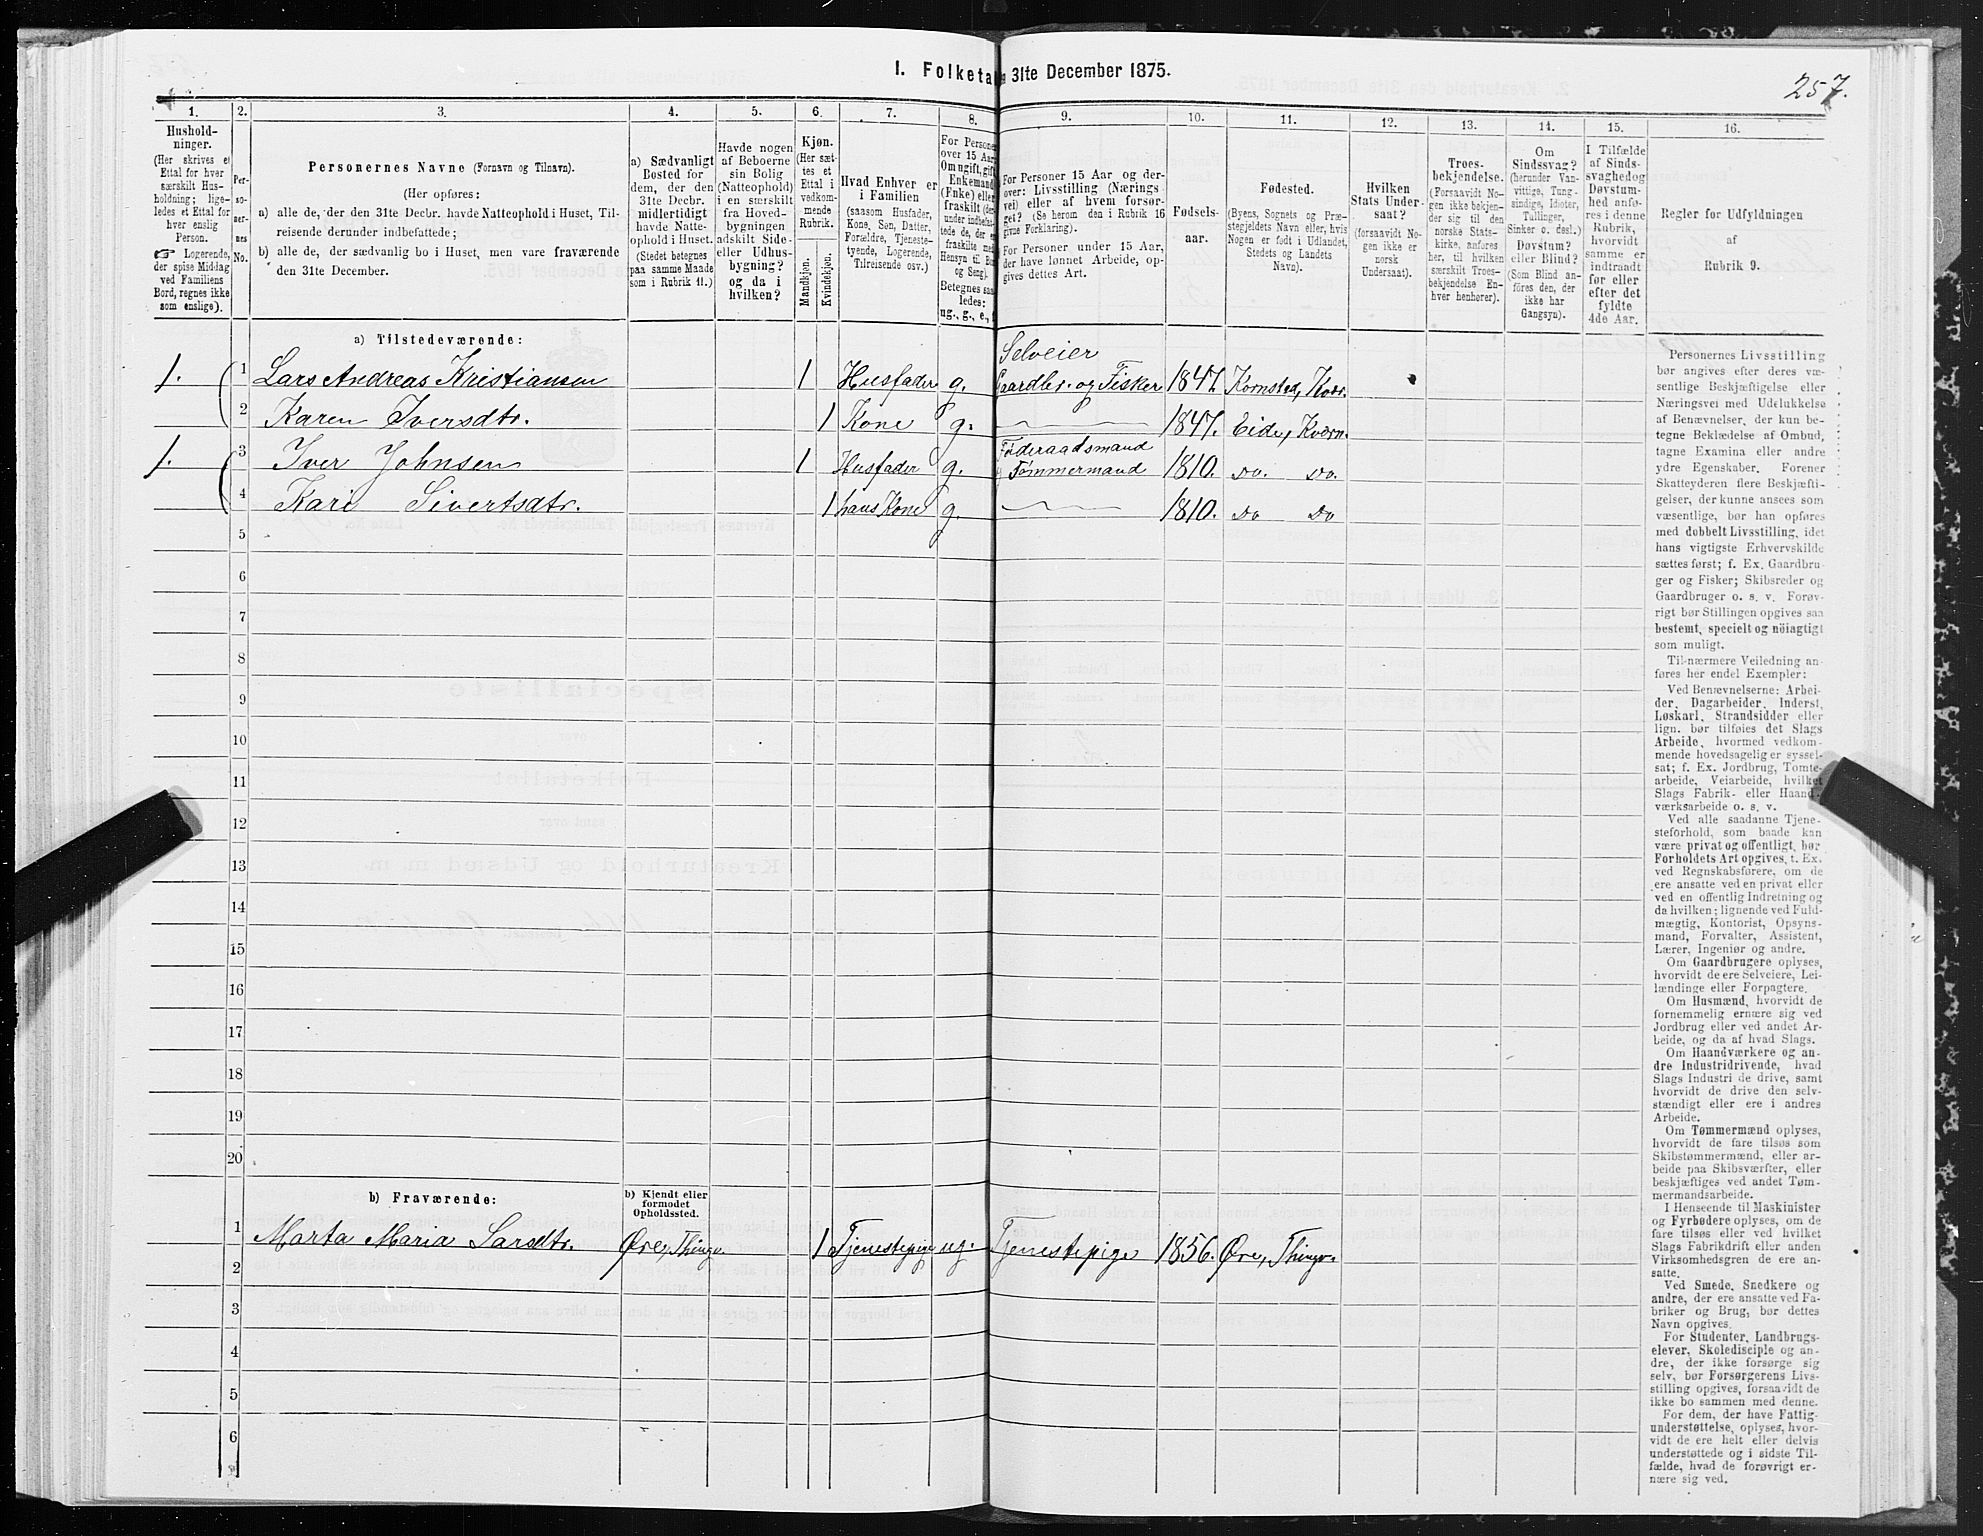 I. Folketa 31te December 1875.
257.
1. 2. 3. 4. 5. 6. 7. 8. 9. 10. 11. 12. 13. 14. 15. 16.
Hushold-
ninger.
(Her skrives et
Ettal for hver
særskilt Hus-
holdning; lige-
ledes et Ettal for
hver enslig
Person.
☞ Logerende,
der spise Middag
ved Familiens
Bord, regnes ikke
som enslige).
Per-
so-
ner-
nes
No.
Personernes Navne (Fornavn og Tilnavn).
(Her opføres:
a) alle de, der den 31te Decbr. havde Natteophold i Huset, Til-
reisende derunder indbefattede;
b) alle de, der sædvanlig bo i Huset, men vare fraværende
den 31te December.
a) Sædvanligt
Bosted for
dem, der den
31te Decbr.
midlertidigt
havde Natte-
ophold i Huset.
(Stedet betegnes
paa samme Maade
som i Rubrik 11.)
Havde nogen
af Beboerne
sin Bolig
(Natteophold)
i en særskilt
fra Hoved-
bygningen
adskilt Side-
eller Udhus-
bygning?
og da i
hvilken?
Kjøn.
(Her sæt-
tes et
Ettal i
vedkom-
mende
Rubrik.
Mandkjøn.
Kvindekjøn.
Hvad Enhver er
i Familien
(saasom Husfader,
Kone, Søn, Datter,
Forældre, Tjeneste-
tyende, Logerende,
Tilreisende osv.)
For Persone
over 15 Aar
Om ugift, gift
Enkemand
(Enke) eller
fraskilt (der
under indbefat-
tede, der er
fraskilte med
Hensyn til Bo
og Seng).
Betegnes saa
ledes:
ug., g., e.,
For Personer 15 Aar og der-
over: Livsstilling (Nærings
vei) eller af hvem forsør-
get? (Se herom den i Rubrik 16
givne Forklaring).
For Personer under 15 Aar,
der have lønnet Arbeide, op-
gives dettes Art.
Fødsels-
aar.
Fødested.
(Byens, Sognets og Præ-
stegjeldets Navn eller, hvis
Nogen er født i Udlandet,
Stedets og Landets
Navn).
Hvilken
Stats Under-
saat?
(forsaavidt No-
gen ikke er
norsk
Undersaat).
Troes-
bekjendelse.
(Forsaavidt No-
gen ikke bekjen-
der sig til den
norske Stats-
kirke, anføres
her, til hvilken
særskilt Troes-
bekjendelse En-
hver henhører).
Om
Sindssvag?
(herunder Van-
vittige, Tung-
sindige, Idioter,
Tullinger,
Sinker o. desl.)
Døvstum?
eller Blind?
(Som Blind an-
føres den, der
ikke har
Gangsyn).
I Tilfælde
af Sinds-
svaghed og
Døvstum-
hed anfø-
res i denne
Rubrik,
hvorvidt
samme er
indtraadt
før eller
efter det
fyldte
4de Aar.
Regler for Udfyldningen
af
Rubrik 9.
a) Tilstedeværende:
1. 1 Lars Andreas Kristiansen 1 Husfader g. Selveier Gaardbr. og Fisker 1847. Kornsted, Kvær.
2 Karen Iversdtr. 1 Kone g. 1847. Eide, Kværn.
1. 3 Iver Johnsen 1 Husfader g. Føderaadsmand Tømmermand 1810. Do. Do.
4 Kari Sivertsdtr. 1 hans Kone g. 1810. Do Do
5
6
7
8
9
10
11
12
13
14
15
16
17
18
19
20
b) Fraværende:
b) Kjendt eller
formodet
Opholdssted.
1 Marta Maria Larsdtr. Øre, Thingv. 1 Tjenestepige ug. Tjenestepige 1856. Øre, Thingv.
2
3
4
5
6
Personernes Livsstilling
bør angives efter deres væ-
sentlige Beskjæftigelse eller
Næringsvei med Udelukkelse
af Benævnelser, der kun be-
tegne Beklædelse af Ombud,
tagne Examina eller andre
ydre Egenskaber. Forener
Skatteyderen flere Beskjæfti-
gelser, der kunne ansees som
væsentlige, bør han opføres
med dobbelt Livsstilling, idet
hans vigtigste Erhvervskilde
sættes først; f. Ex. Gaardbru-
ger og Fisker; Skibsreder og
Gaardbruger o. s. v. Forøv-
rigt bør Stillingen opgives saa
bestemt, specielt og nöiagtigt
som muligt.
Til nærmere Veiledning an-
føres her endel Exempler:
Ved Benævnelserne: Arbei-
der, Dagarbeider, Inderst,
Løskarl, Strandsidder eller
lign. bør tilføies det Slags
Arbeide, hvormed vedkom-
mende hovedsagelig er syssel-
sat; f. Ex. Jordbrug, Tomte-
arbeide, Veiarbeide, hvilket
Slags Fabrik- eller Haand-
værksarbeide o. s. v.
Ved alle saadanne Tjene-
steforhold, som baade kan
være privat og offentligt, bør
Forholdets Art opgives, t. Ex.
ved Regnskabsførere, om de
ere ansatte ved en privat eller
ved en offentlig Indretning og
da hvilken; lignende ved Fuld-
mægtig, Kontorist, Opsyns-
mand, Forvalter, Assistent,
Lærer, Ingeniør og andre.
Om Gaardbrugere oplyses,
hvorvidt de ere Selveiere, Lei-
lændinge eller Forpagtere.
Om Husmænd, hvorvidt de
fornemmelig ernære sig ved
Jordbrug eller ved andet Ar-
beide, og da af hvad Slags.
Om Haandværkere og an-
dre Industridrivende, hvad
Slags Industri de drive, samt
hvorvidt de drive den selv-
stændigt eller ere i andres
Arbeide.
Om Tømmermænd oplyses,
hvorvidt de fare tilsøs som
Skibstømmermænd, eller ar-
beide paa Skibsværfter, eller
beskjæftiges ved andet Tøm-
mermandsarbeide.
I Henseende til Maskinister
og Fyrbødere oplyses, om de
fare tilsøs eller ved hvilket
Slags Fabrikdrift eller anden
Virksomhedsgren de ere an-
satte.
Ved Smede, Snedkere og
andre, der ere ansatte ved Fa-
briker og Brug, bør dettes
Navn opgives.
For Studenter, Landbrugs-
elever, Skoledisciple og an-
dre, der ikke forsørge sig
selv, bør Forsørgerens Livs-
stilling opgives, forsaavidt de
ikke bo sammen med denne.
For dem, der have Fattig-
understøttelse, oplyses, hvor-
vidt de ere helt eller delvis
understøttede og i sidste Til-
fælde, hvad de forøvrigt er-
nære sig ved.